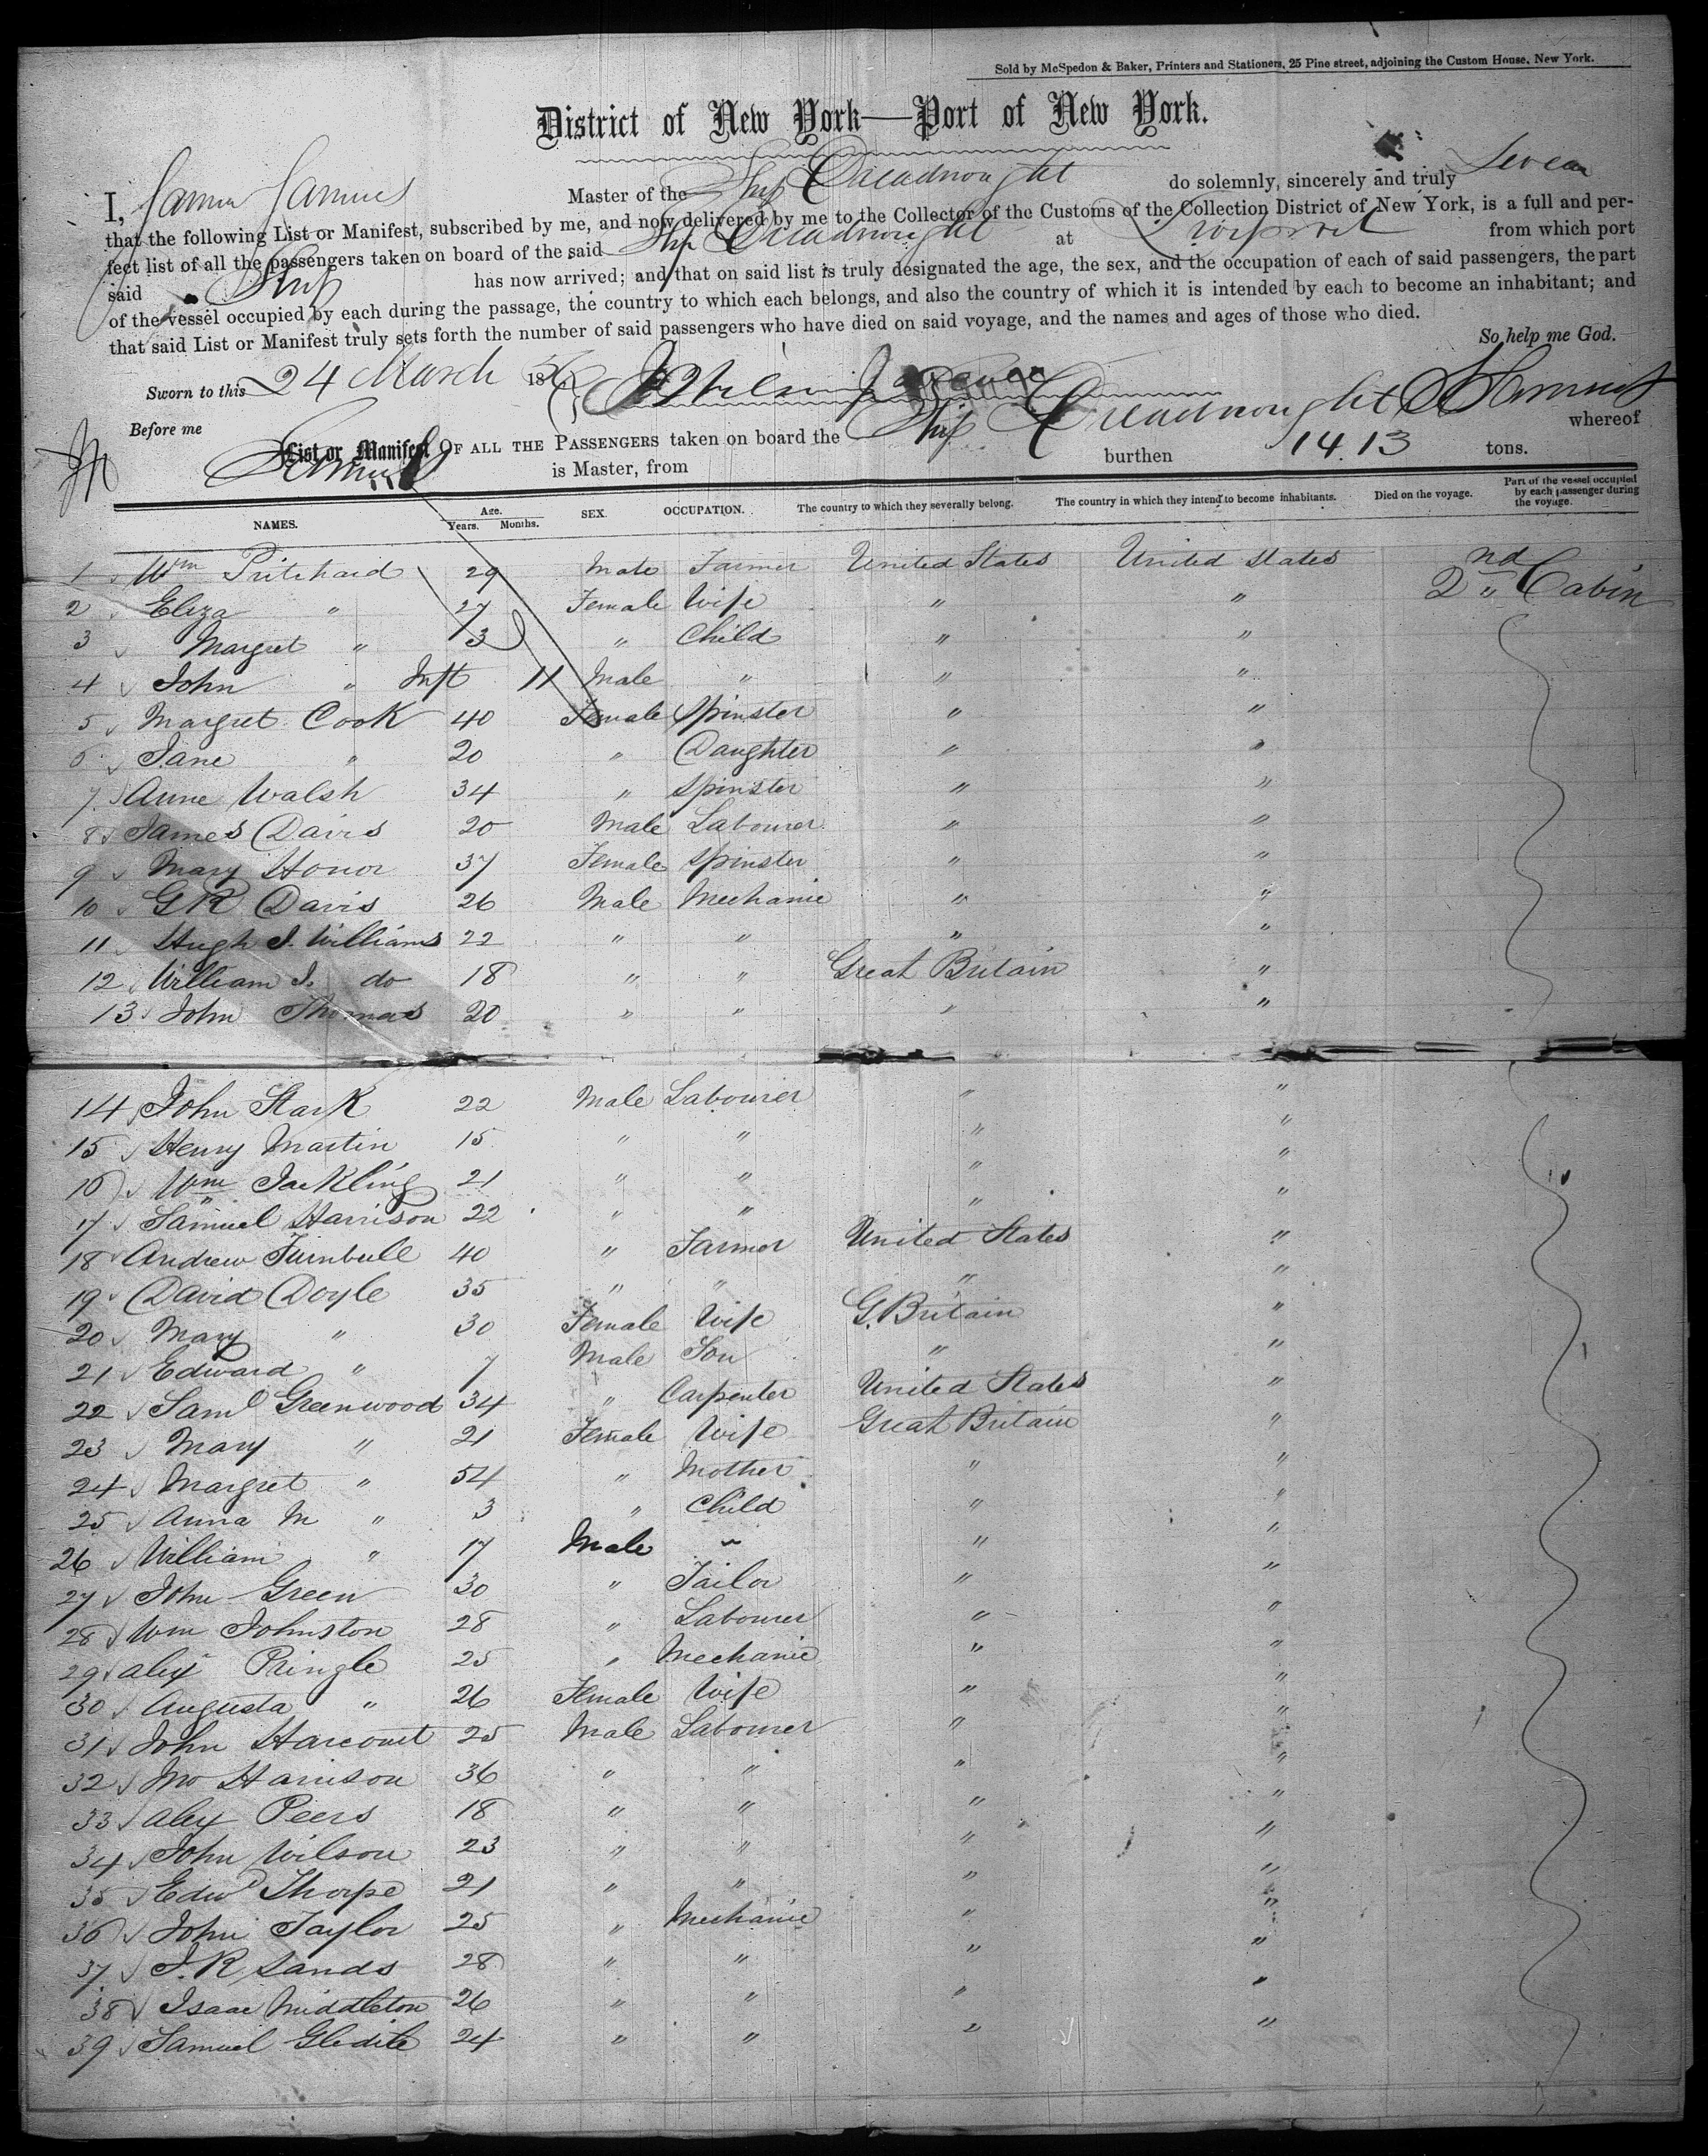 Sold by McSpedon & Baker, Printers and Stationers, 25 Pine street, adjoining the Custom House, New York.
District of New York—Port of New York.
I, Samuel Samuels Master of the Ship Dreadnought do solemnly, sincerely and truly Swear
that the following List or Manifest, subscribed by me, and now delivered by me to the Collector of the Customs of the Collection District of New York, is a full and per-
fect list of all the passengers taken on board of the said Ship Dreadnought at Liverpool from which port
said Ship has now arrived; and that on said list is truly designated the age, the sex, and the occupation of each of said passengers, the part
of the vessel occupied by each during the passage, the country to which each belongs, and also the country of which it is intended by each to become an inhabitant; and
that said List or Manifest truly sets forth the number of said passengers who have died on said voyage, and the names and ages of those who died.
So help me God.
Sworn to this 24 March 18
Before me
List or Manifest OF ALL THE PASSENGERS taken on board the Ship Dreadnought whereof
S Samuels
is Master, from burthen 1413 tons.
NAMES. Age. Years. Months. SEX. OCCUPATION. The country to which they severally belong. The country in which they intend to become inhabitants. Died on the voyage. Part of the vessel occupied by each passenger during the voyage.
1 Wm Pritchard 29 Male Farmer United States United States 2nd Cabin
2 Eliza " 27 Female Wife " "
3 Margret " 3 " Child " "
4 John " Inft 11 Male " " "
5 Margret Cook 40 Female Spinster " "
6 Jane " 20 " Daughter " "
7 Anne Walsh 34 " Spinster " "
8 James Davis 20 Male Labourer " "
9 Mary Honor 37 Female Spinster " "
10 G R Davis 26 Male Mechanic " "
11 Hugh J. Williams 22 " " " "
12 William J. do 18 " " Great Britain "
13 John Thomas 20 " " " "
14 John Stark 22 Male Labourer " "
15 Henry Martin 15 " " " "
16 Wm Jackling 21 " " " "
17 Samuel Harrison 22 " " " "
18 Andrew Turnbull 40 " Farmer United States "
19 David Doyle 35 " " " "
20 Mary " 30 Female Wife G. Britain "
21 Edward " 7 Male Son " "
22 Saml Greenwood 34 " Carpenter United States "
23 Mary " 21 Female Wife Great Britain "
24 Margret " 54 " Mother " "
25 Anna M " 3 " Child " "
26 William " 17 Male " " "
27 John Green 30 " Tailor " "
28 Wm Johnston 28 " Labourer " "
29 Alex Pringle 25 " Mechanic " "
30 Augusta " 26 Female Wife " "
31 John Harcourt 25 Male Labourer " "
32 Jno Harrison 36 " " " "
33 Alex Peers 18 " " " "
34 John Wilson 23 " " " "
35 Edwd Thorpe 21 " " " "
36 John Taylor 25 " Mechanic " "
37 J. R. Sands 28 " " " "
38 Isaac Middleton 26 " " " "
39 Samuel 24 " " " "